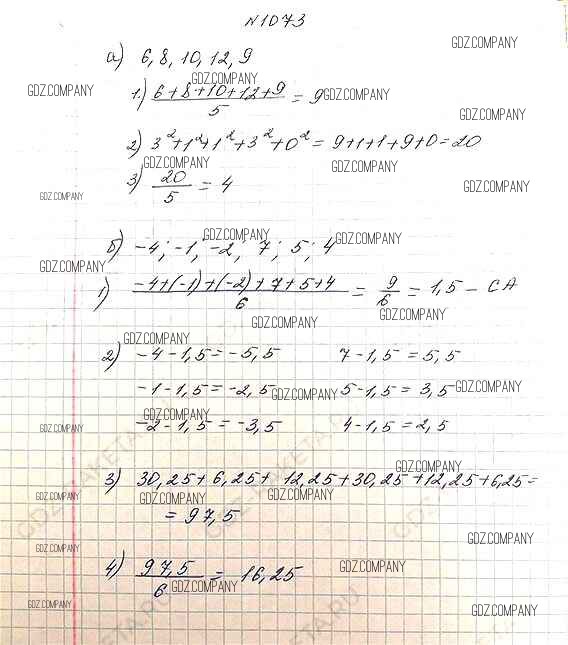 N1073
GDZ.COMPANY
а) 6, 8, 10, 12, 9
GDZ.COMPANY
GDZ.COMPANY
1) (6+8+10+12+9)/5 = 9
GDZ.COMPANY
GDZ.COMPANY
2) 3²+1²+1²+3²+0² = 9+1+1+9+0=20
GDZ.COMPANY
GDZ.COMPANY
3) 20/5 = 4
GDZ.COMPANY
GDZ.COMPANY
GDZ.COMPANY
б) -4; -1; -2; 7; 5; 4
GDZ.COMPANY
GDZ.COMPANY
1) (-4+(-1)+(-2)+7+5+4)/6 = 9/6 = 1,5 - СА
GDZ.COMPANY
GDZ.COMPANY
GDZ.COMPANY
2) -4-1,5=-5,5 7-1,5=5,5
-1-1,5=-2,5 GDZ.COMPANY 5-1,5=3,5 GDZ.COMPANY
GDZ.COMPANY
GDZ.COMPANY
-2-1,5=-3,5 4-1,5=2,5
GDZ.COMPANY
3) 30,25+6,25+12,25+30,25+12,25+6,25=
GDZ.COMPANY
GDZ.COMPANY
GDZ.COMPANY
= 97,5
GDZ.COMPANY
GDZ.COMPANY
4) 97,5/6 = 16,25
GDZ.COMPANY
GDZ.COMPANY
GDZ.COMPANY
GDZ.COMPANY